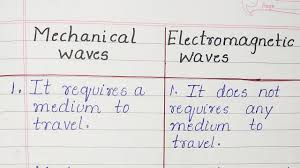 Mechanical waves
Electromagnetic waves
1. It requires a
medium to
travel.
1. It does not
requires any
medium to
travel.